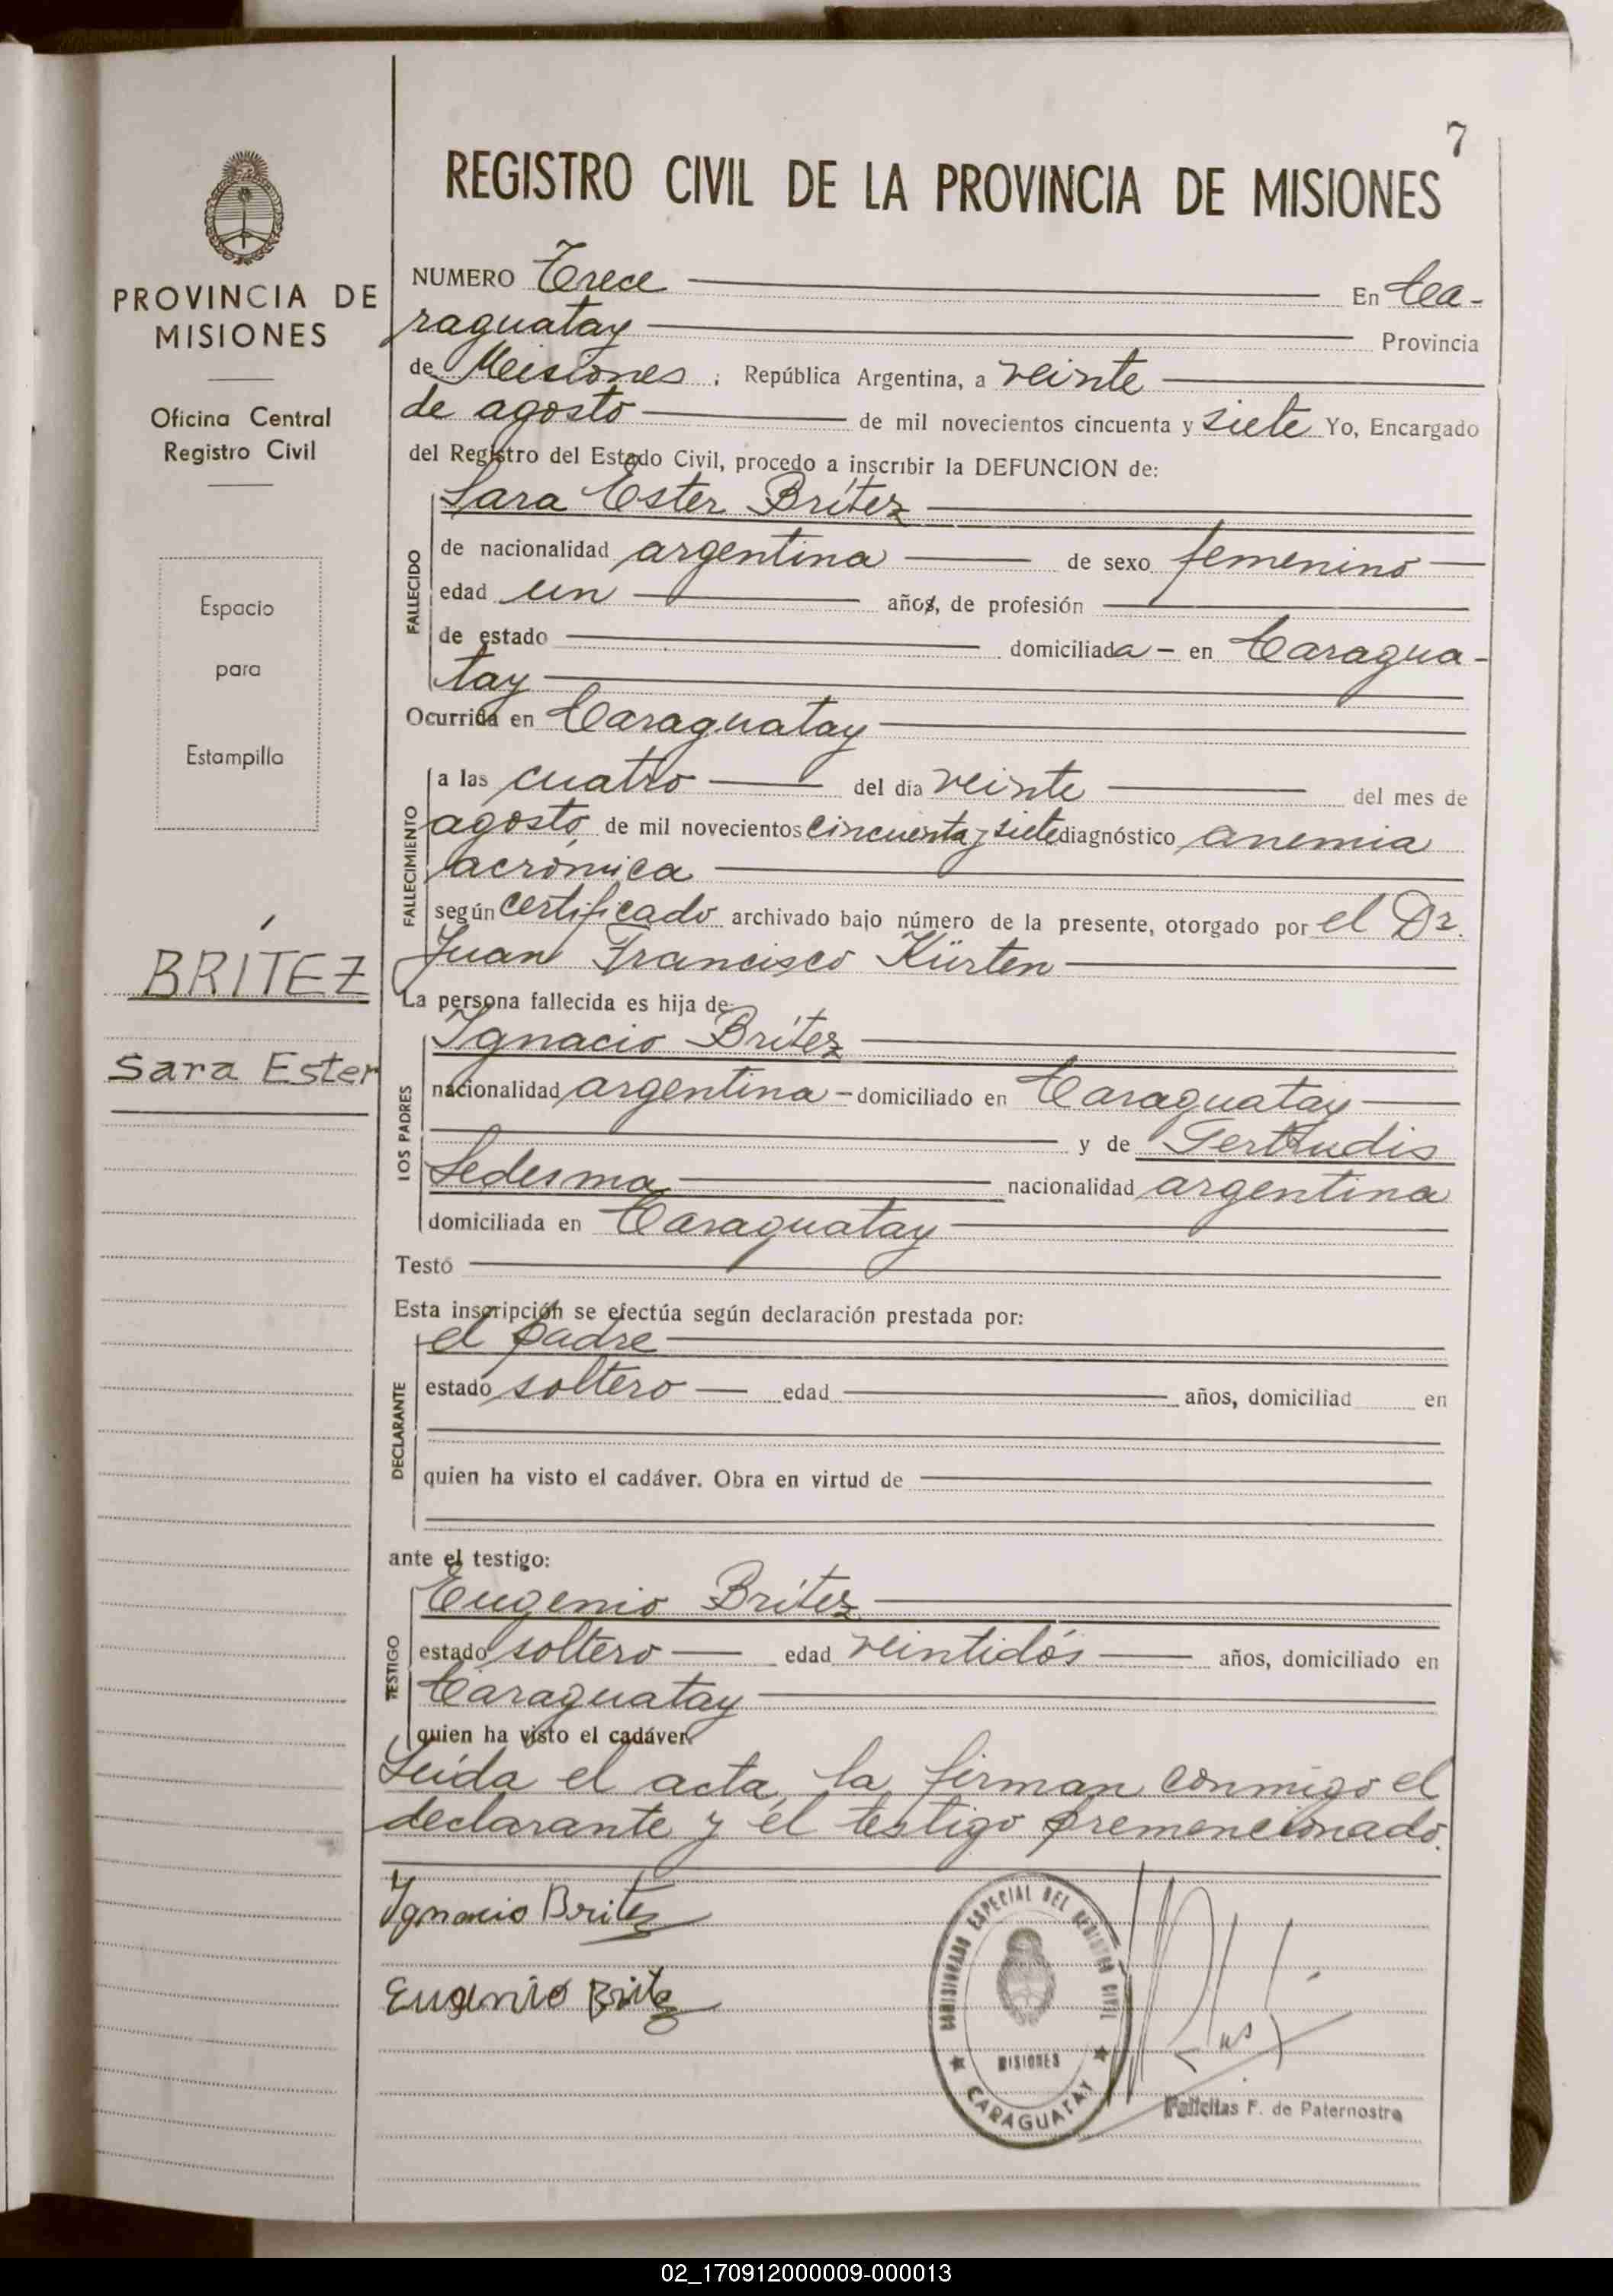 7
REGISTRO CIVIL DE LA PROVINCIA DE MISIONES
PROVINCIA DE
MISIONES
Oficina Central
Registro Civil
Espacio
para
Estampilla
BRÍTEZ
Sara Ester
NUMERO Trece En Ca-
raguatay Provincia
de Misiones ; República Argentina, a veinte
de agosto de mil novecientos cincuenta y siete Yo, Encargado
del Registro del Estado Civil, procedo a inscribir la DEFUNCION de:
FALLECIDO
Sara Ester Brítez
de nacionalidad argentina de sexo femenino
edad un años, de profesión
de estado domiciliada - en Caragua-
tay
Ocurrida en Caraguatay
FALLECIMIENTO
a las cuatro del día veinte del mes de
agosto, de mil novecientos cincuenta y siete diagnóstico anemia
acrónica
según certificado archivado bajo número de la presente, otorgado por el Dr.
Juan Francisco Kürten
La persona fallecida es hija de
LOS PADRES
Ignacio Brítez
nacionalidad argentina - domiciliado en Caraguatay
y de Gertrudis
Ledesma nacionalidad argentina
domiciliada en Caraguatay
Testó
Esta inscripción se efectúa según declaración prestada por:
DECLARANTE
el padre
estado soltero edad años, domiciliad en
quien ha visto el cadáver. Obra en virtud de
ante el testigo:
TESTIGO
Eugenio Brítez
estado soltero edad veintidós años, domiciliado en
Caraguatay
quien ha visto el cadáver.
Leída el acta, la firman conmigo el
declarante y el testigo premencionado.
Ignacio Britez
Eugenio Britez
COMISIONADO ESPECIAL DEL REGISTRO CIVIL
MISIONES
CARAGUATAY
Felicitas F. de Paternostro
02_170912000009-000013